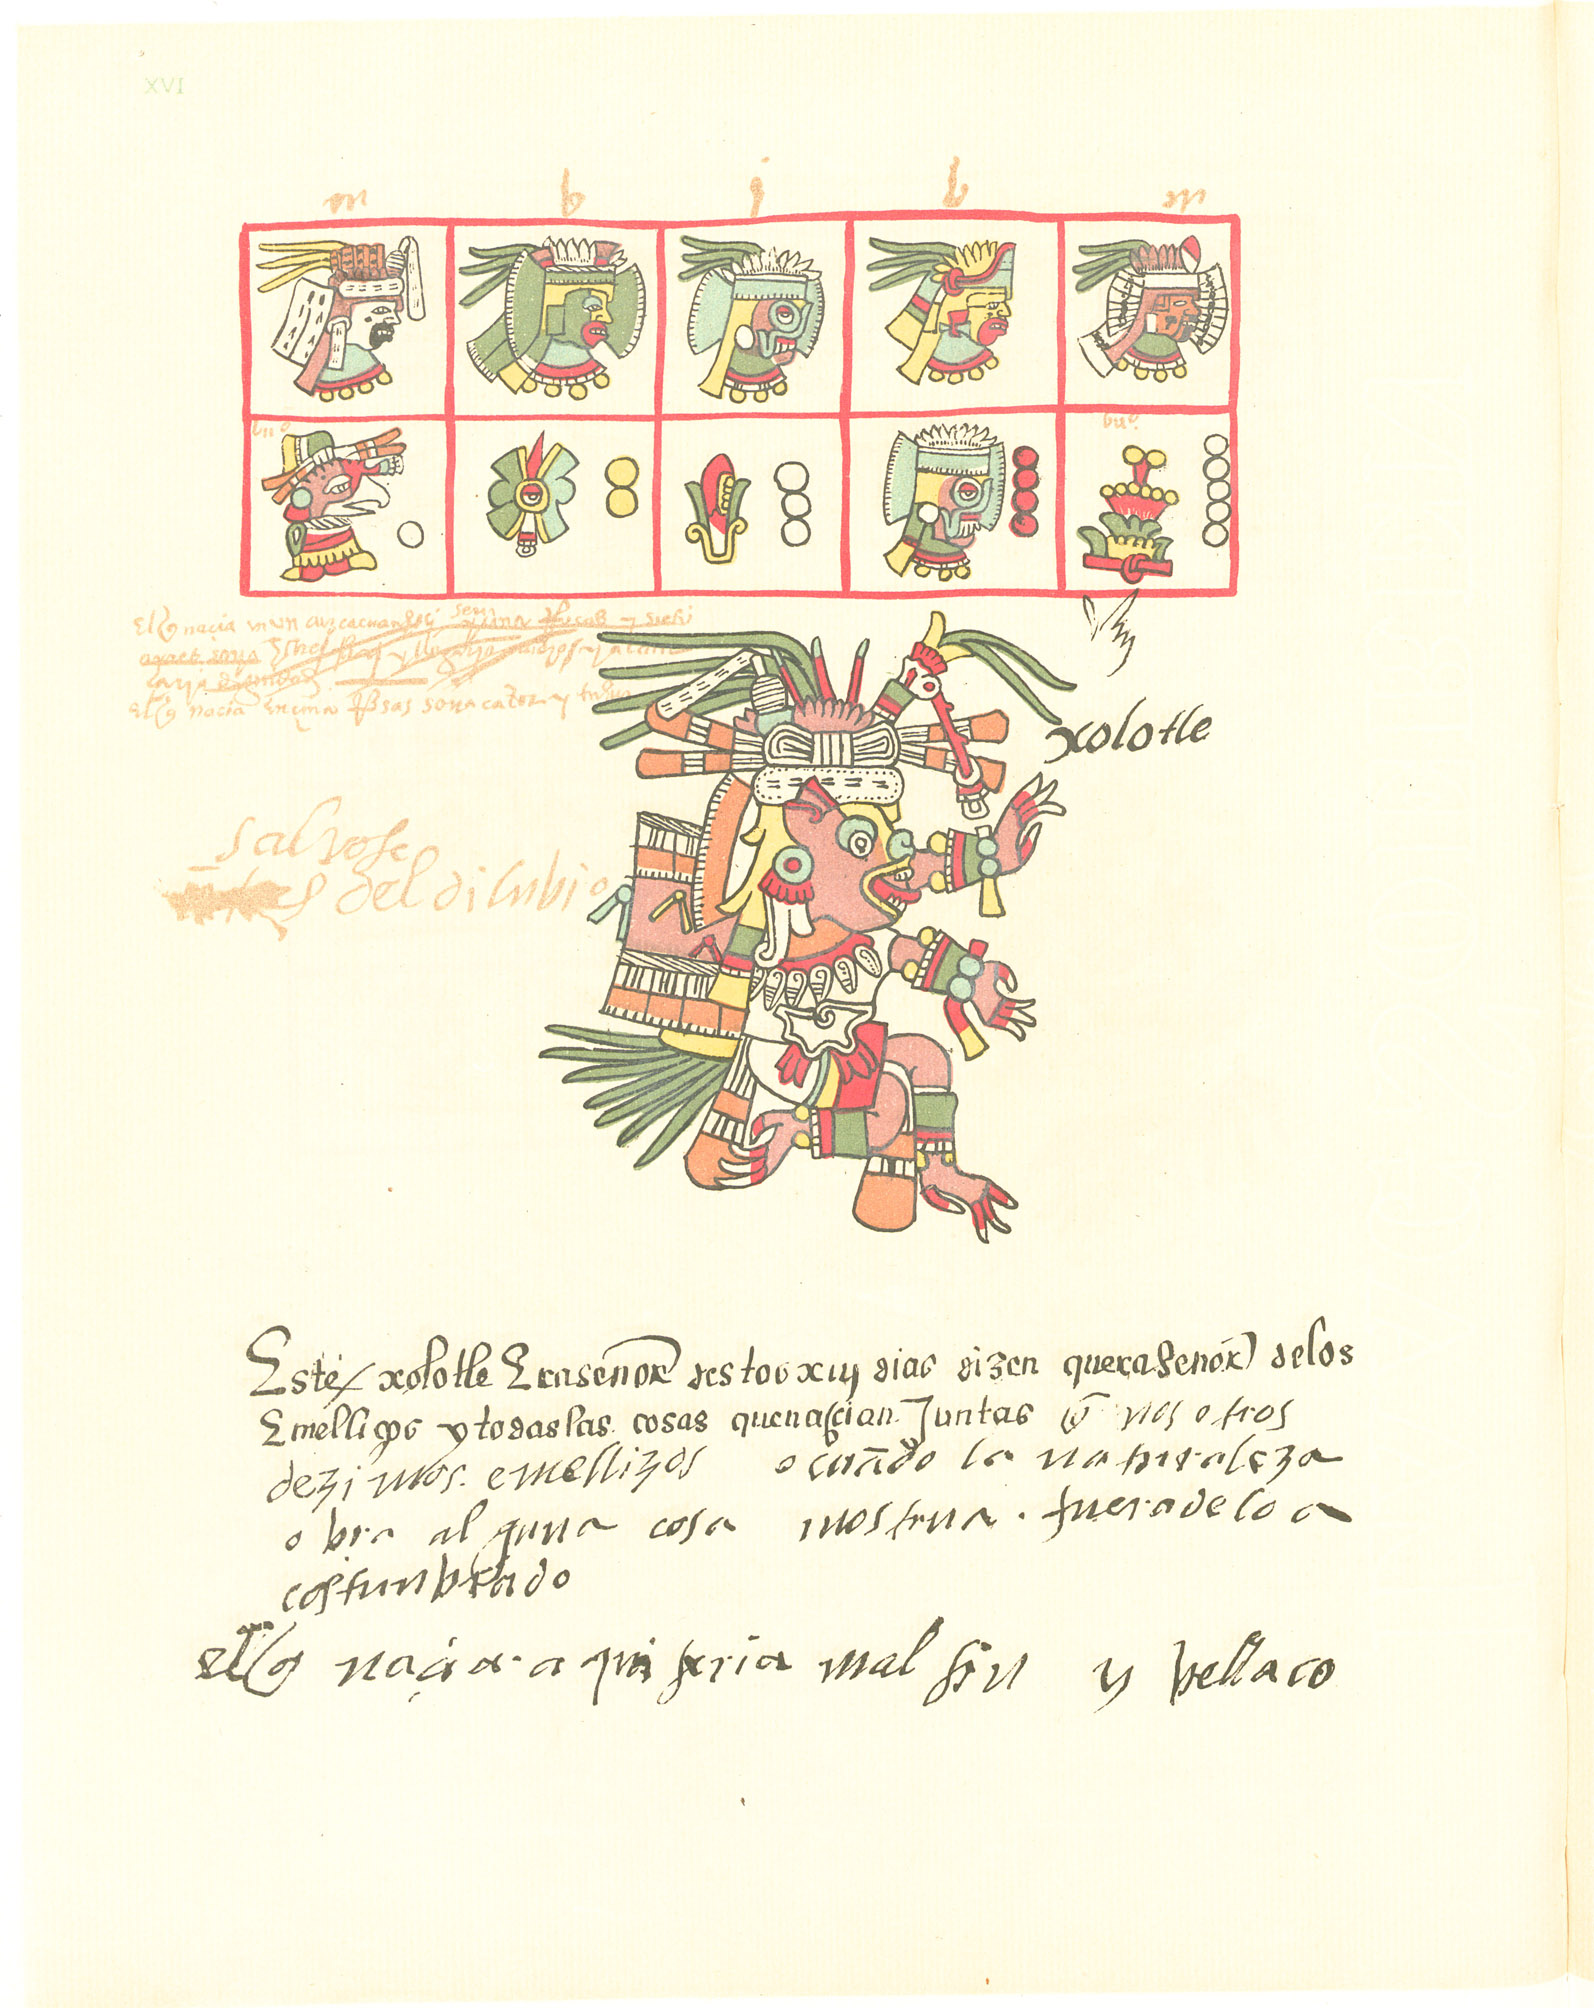 XVI
m b j b m
bu^o bu^o
El q̃ nacia en un cuzcacuauhtli
El q̃ nacia en una
xolotle
salvose
del dilubio
Este xolotle Era señor destos xiij dias dizen que era señor de los
Emellizos y todas las cosas que nascian Juntas q̃ nosotros
dezimos. emellizos o cuãdo la naturaleza
obra alguna cosa mostrua. fuera de lo a
costumbrado
el q̃ naçia. aqui seria malsin y bellaco